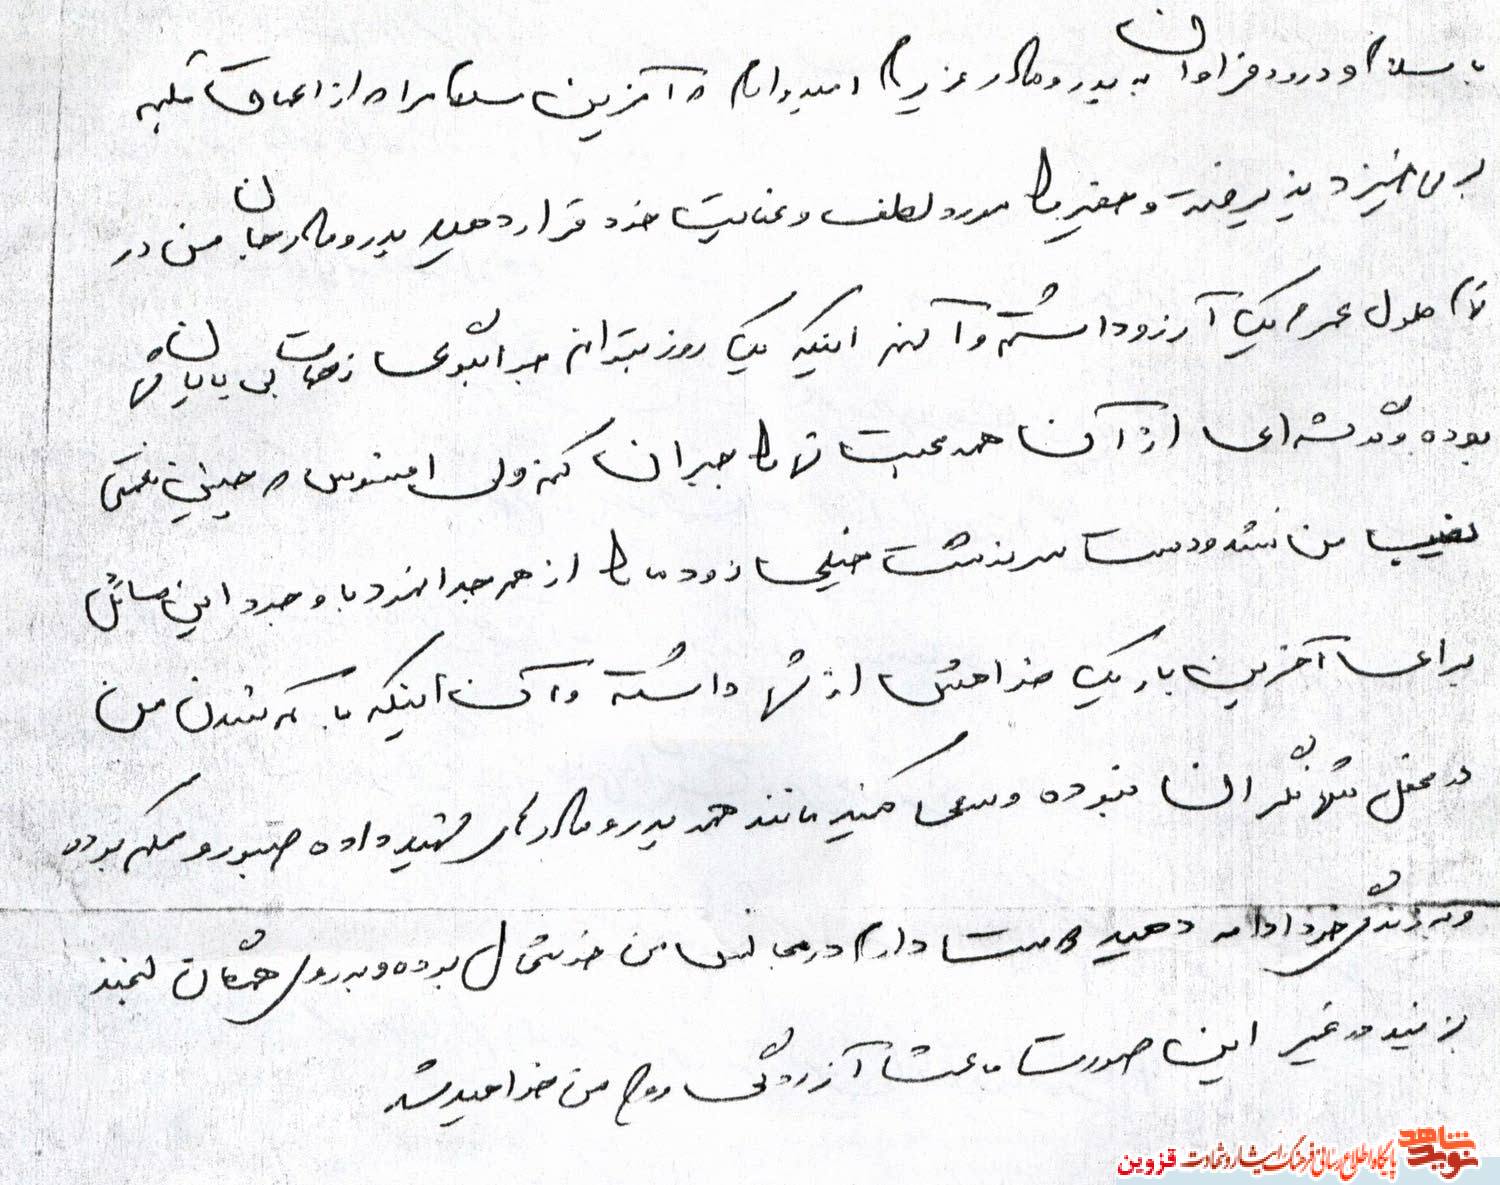 با سلام و درود فراوان به پدر و مادر عزیزم امیدوارم که آخرین سلام مرا که از اعماق قلبم
بر می خیزد پذیرفته و حقیر را مورد لطف و عنایت خود قرار دهید پدر و مادر جان من در
تمام طول عمرم یک آرزو داشتم و آن اینکه یک روز بتوانم جوابگوی زحمات بی پایان شما
بوده و گوشه ای از آن همه محبت شما را جبران کنم ولی افسوس که چنین نعمتی
نصیب من نشد و دست سرنوشت خیلی زود ما را از هم جدا نمود با وجود این مسائل
برای آخرین بار یک خواهش از شما داشته و آن اینکه با کم شدن من
در محفل شما نگران نبوده و سعی کنید مانند همه پدر و مادرهای شهید داده صبور و محکم بوده
و به زندگی خود ادامه دهید دوست دارم در مجالس من خوشحال بوده و بر روی همگان لبخند
بزنید در غیر این صورت باعث آزردگی روح من خواهید شد
نوید شاهد
پایگاه اطلاع رسانی فرهنگ ایثار و شهادت قزوین